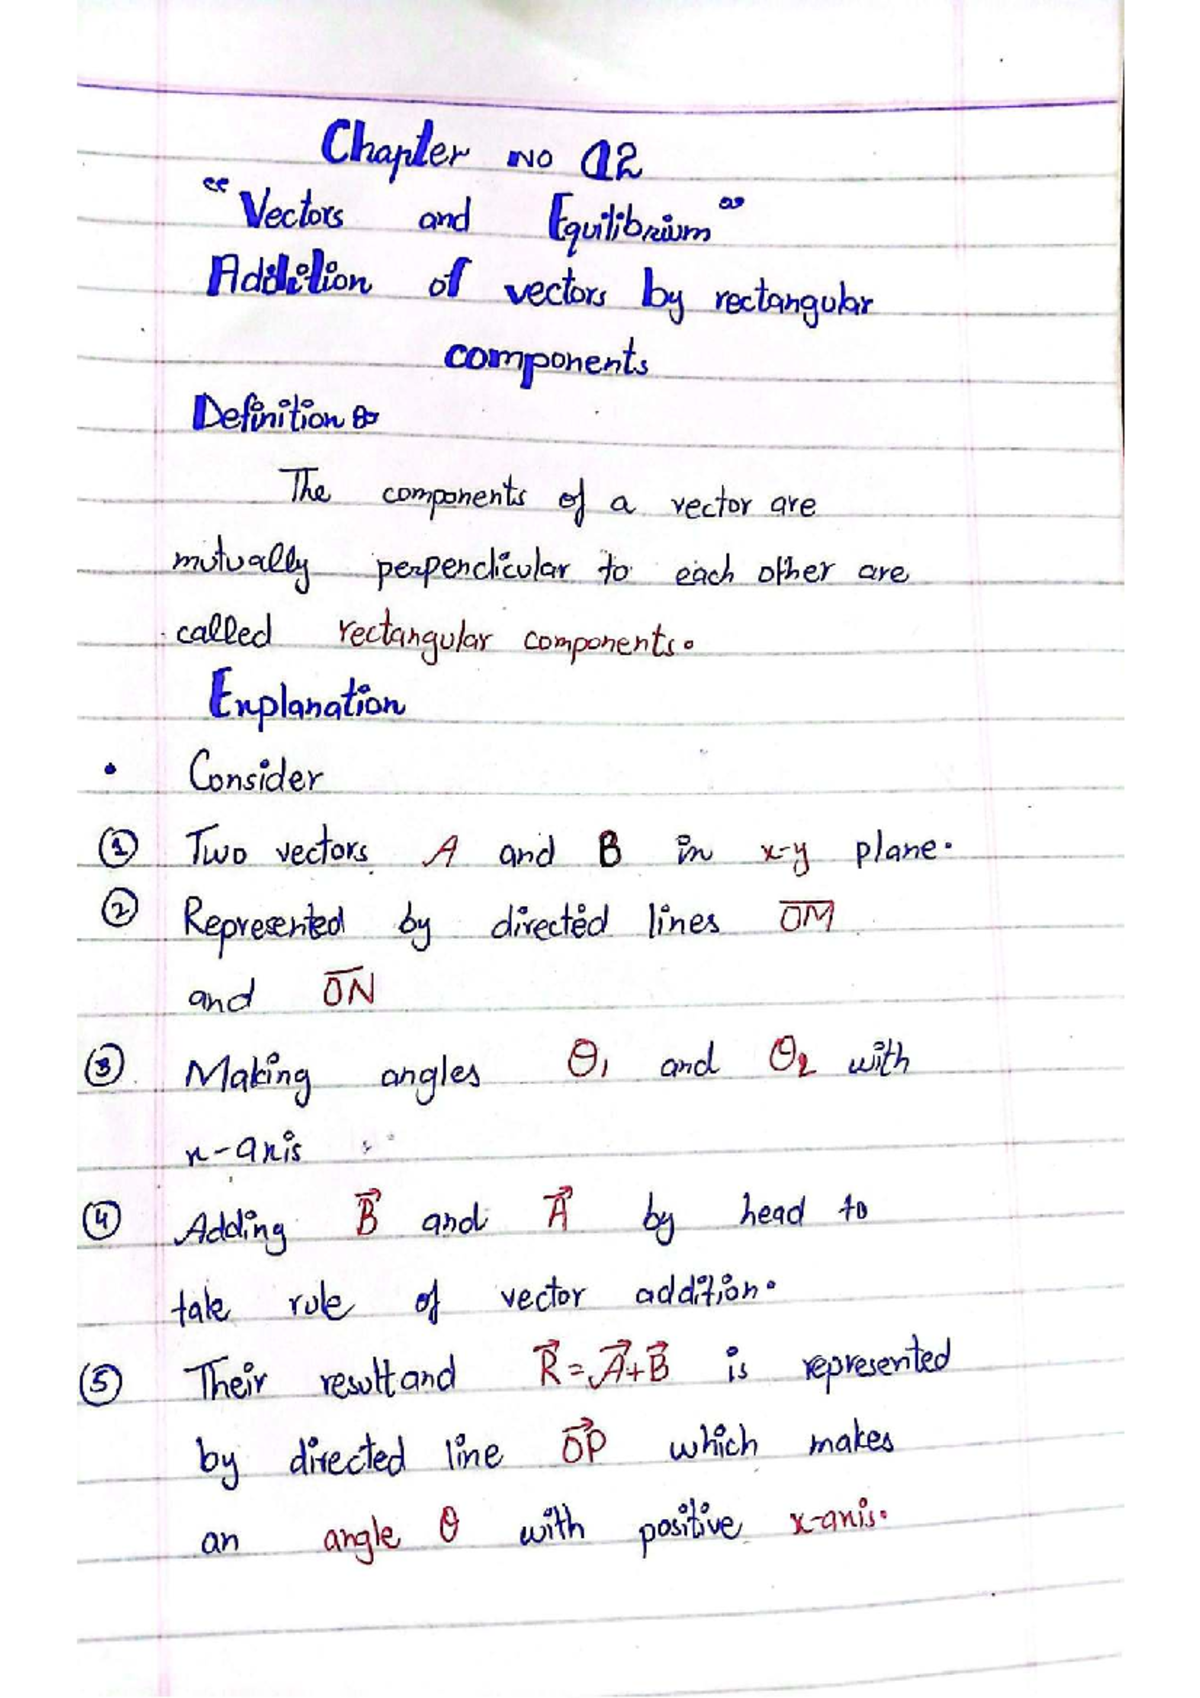 Chapter NO 02
"Vectors and Equilibrium"
Addition of vectors by rectangular
components
Definition :-
The components of a vector are
mutually perpendicular to each other are
called rectangular components.
Explanation
• Consider
① Two vectors A and B in x-y plane.
② Represented by directed lines O̅M̅
and O̅N̅
③ Making angles θ₁ and θ₂ with
x-axis
④ Adding B⃗ and A⃗ by head to
take rule of vector addition.
⑤ Their resultand R⃗ = A⃗ + B⃗ is represented
by directed line OP⃗ which makes
an angle θ with positive x-axis.